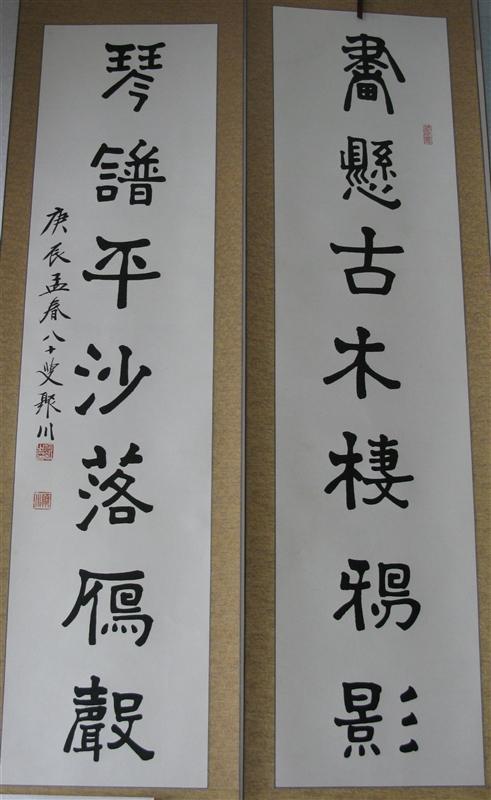 畫懸古木棲鴉影
琴譜平沙落鴈聲
庚辰孟春八十叟聚川